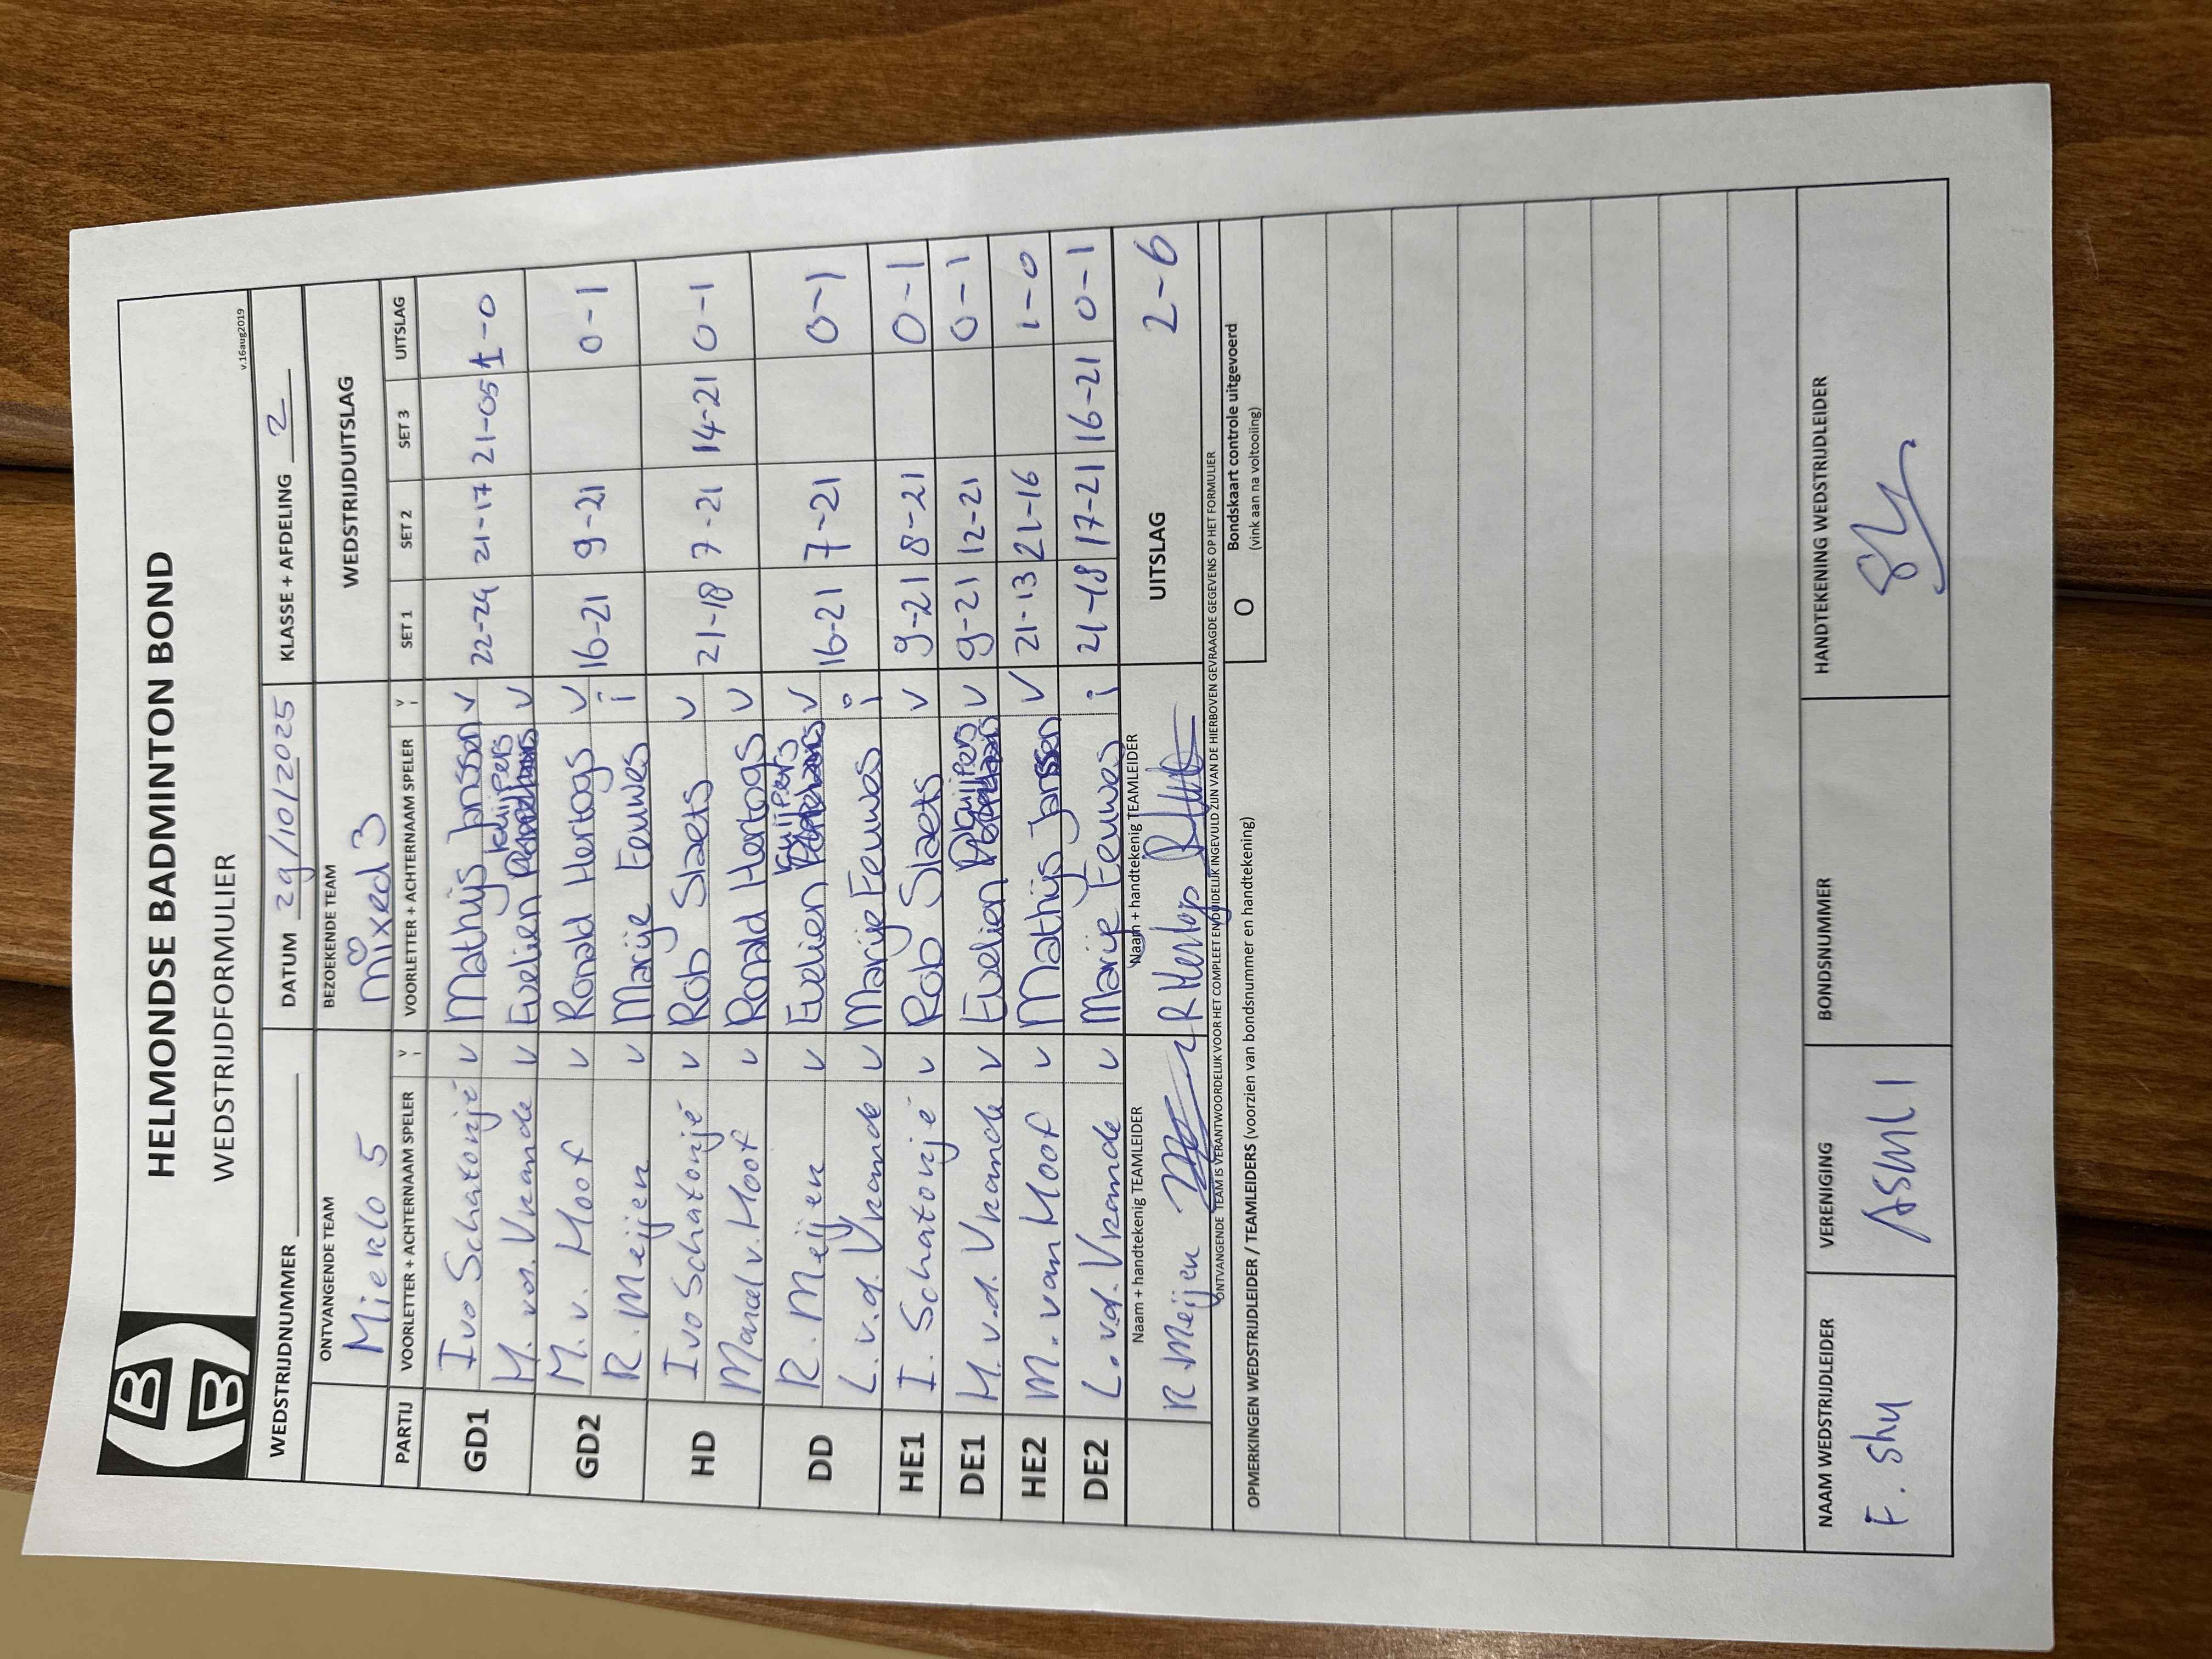 HELMONDSE BADMINTON BOND
WEDSTRIJDFORMULIER
v.16aug2019
WEDSTRIJDNUMMER DATUM 29/10/2025 KLASSE + AFDELING 2
ONTVANGENDE TEAM BEZOEKENDE TEAM WEDSTRIJDUITSLAG
Mierlo 5 mixed 3
PARTIJ VOORLETTER + ACHTERNAAM SPELER V i VOORLETTER + ACHTERNAAM SPELER V i SET 1 SET 2 SET 3 UITSLAG
GD1 Ivo Schatorjé v Mathijs Janssen v 22-24 21-17 21-05 1-0
M. v.d. Vrande v Evelien Kuijpers v
GD2 M. v. Hoof v Ronald Hertogs v 16-21 9-21 0-1
R. Meijen v Marije Eeuwes i
HD Ivo Schatorjé v Rob Slaets v 21-18 7-21 14-21 0-1
Marcel v. Hoof v Ronald Hertogs v
DD R. Meijen v Evelien Kuijpers v 16-21 7-21 0-1
L. v.d. Vrande v Marije Eeuwes i
HE1 I. Schatorjé v Rob Slaets v 9-21 8-21 0-1
DE1 M. v.d. Vrande v Evelien Kuijpers v 9-21 12-21 0-1
HE2 M. van Hoof v Mathijs Janssen v 21-13 21-16 1-0
DE2 L. v.d. Vrande v Marije Eeuwes i 21-18 17-21 16-21 0-1
Naam + handtekenig TEAMLEIDER Naam + handtekenig TEAMLEIDER UITSLAG 2-6
R. Meijen R Hertogs
ONTVANGENDE TEAM IS VERANTWOORDELIJK VOOR HET COMPLEET EN DUIDELIJK INGEVULD ZIJN VAN DE HIERBOVEN GEVRAAGDE GEGEVENS OP HET FORMULIER
OPMERKINGEN WEDSTRIJDLEIDER / TEAMLEIDERS (voorzien van bondsnummer en handtekening) O Bondskaart controle uitgevoerd
(vink aan na voltooiing)
NAAM WEDSTRIJDLEIDER VERENIGING BONDSNUMMER HANDTEKENING WEDSTRIJDLEIDER
F. Shu